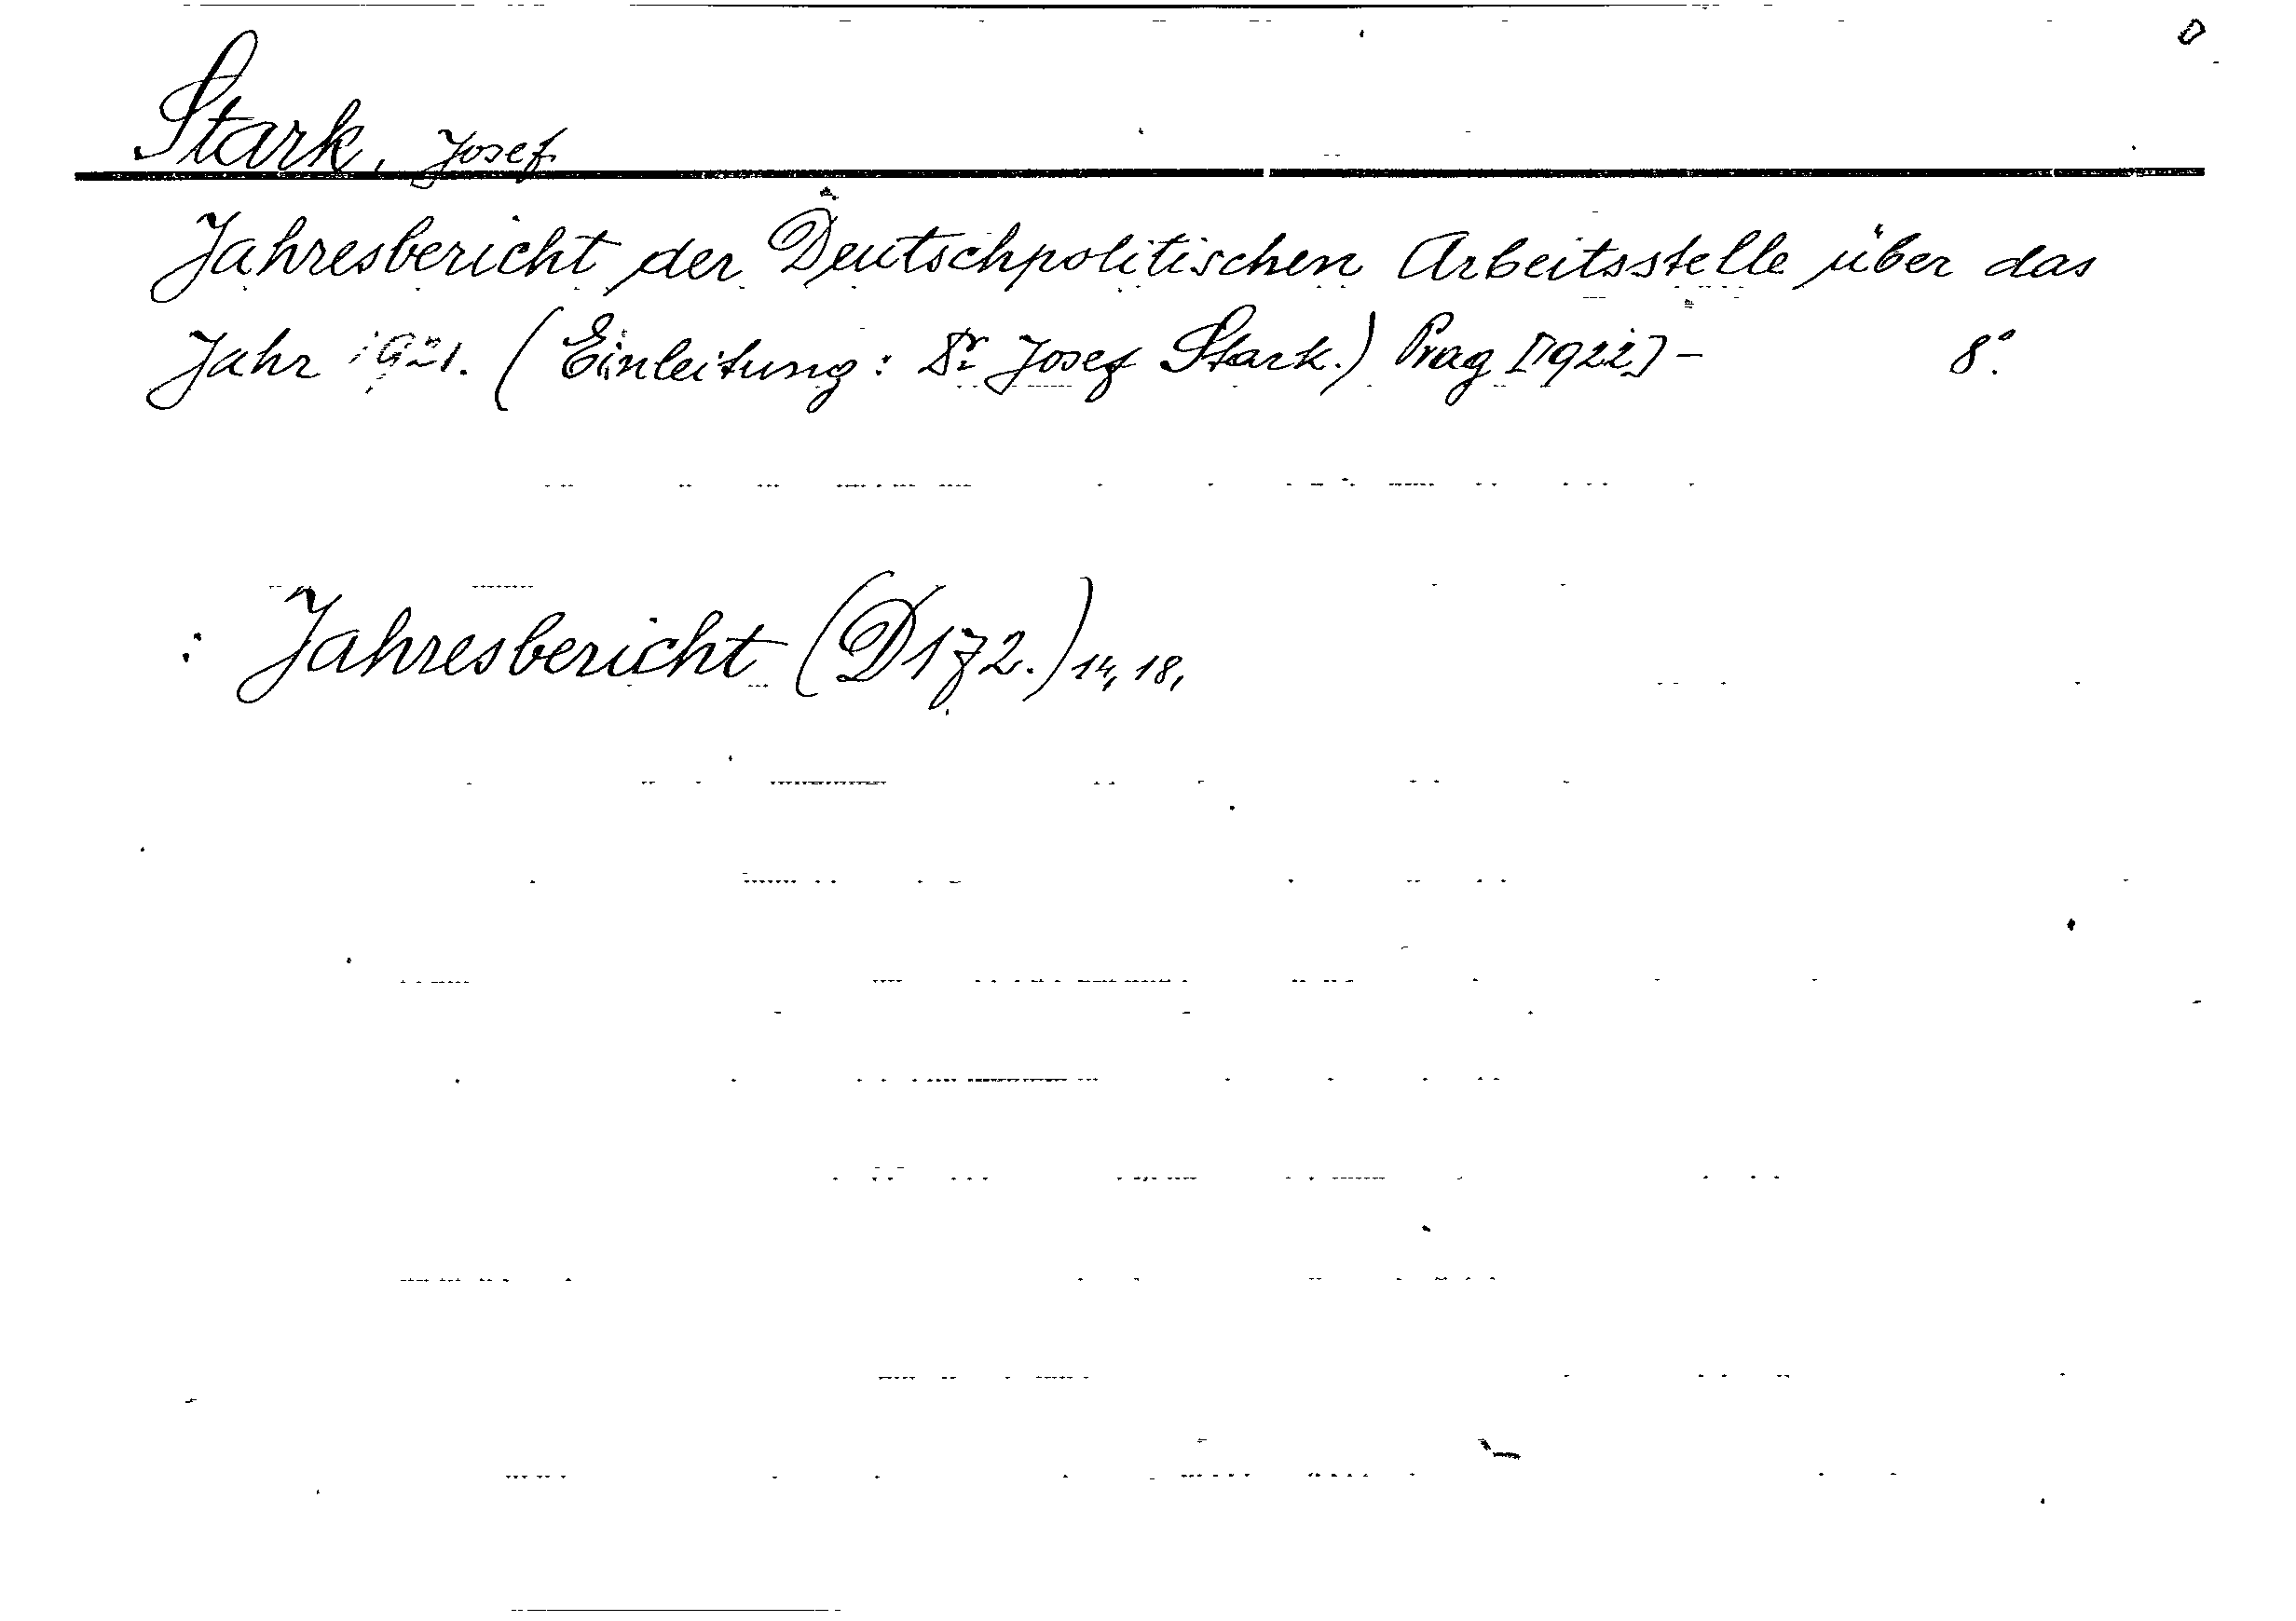 Stark, Josef
Jahresbericht der Deutschpolitischen Arbeitsstelle über das
Jahr 1921. (Einleitung: Dr Josef Stark.) Prag [1922] - 8°.
: Jahresbericht (D172.) 14, 18,